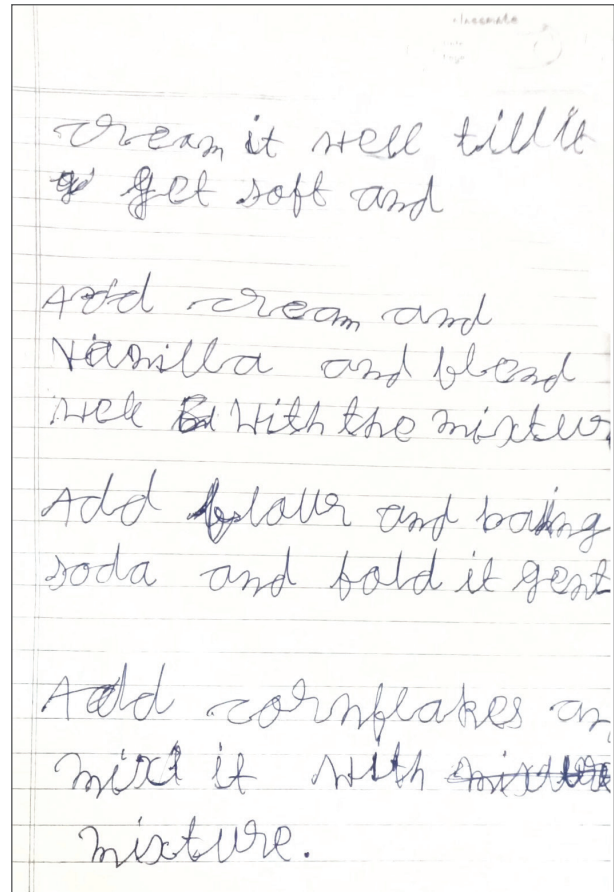 classmate
cream it well till it
get soft and
Add cream and
Vanilla and blend
well with the mixtur
Add flour and baking
soda and fold it gent
Add cornflakes an
mixt it with mixture
mixture.